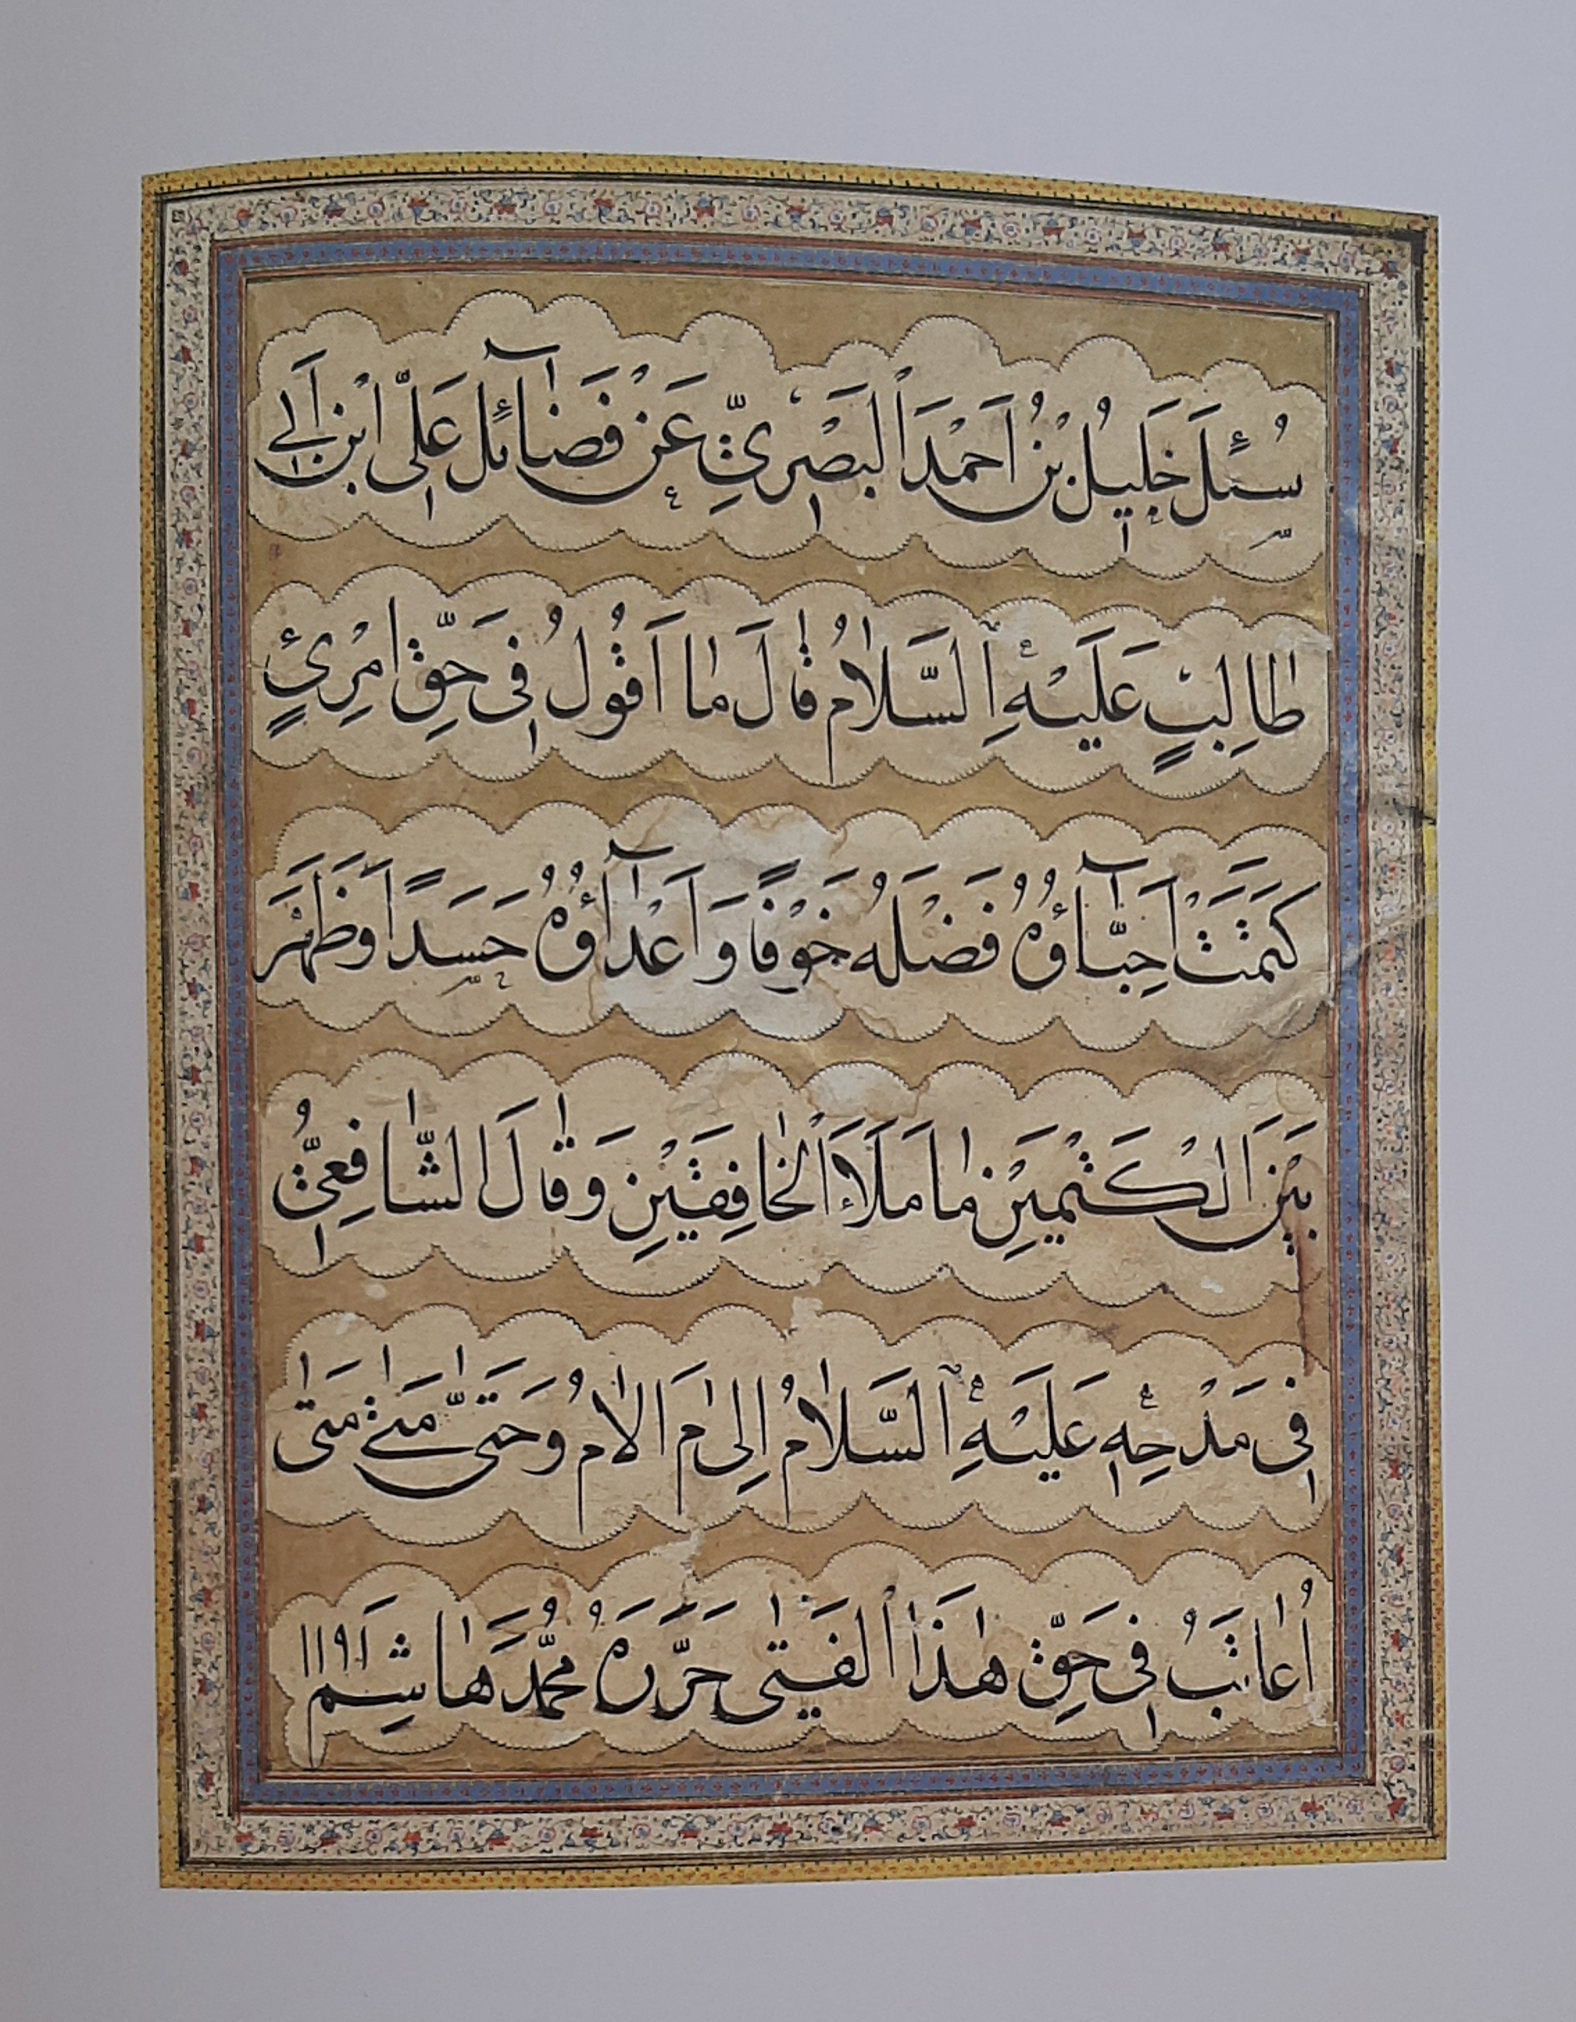 سُئِلَ خَلِيلُ بْنُ اَحْمَدَ الْبَصْرِيِّ عَنْ فَضَآئِلِ عَلِىِّ ابْنِ اَبِى
طَالِبٍ عَلَيْهِ السَّلَامُ قَالَ مَا اَقُولُ فِى حَقِّ امْرِئٍ
كَتَمَتْ اَحِبَّآؤُهُ فَضْلَهُ خَوْفًا وَ اَعْدَآؤُهُ حَسَدًا وَظَهَرَ
بَيْنَ الْكَتْمَيْنِ مَا مَلَاَ الْخَافِقَيْنِ وَقَالَ الشَّافِعِىُّ
فِى مَدْحِهِ عَلَيْهِ السَّلَامُ اِلَى مَ اُلَامُ وَحَتَّى مَتَى مَتَى
اُعَاتَبُ فِى حَقِّ هٰذَا الْفَتَى حَرَّرَهُ مُحَمَّد هَاشِم ١١٩١